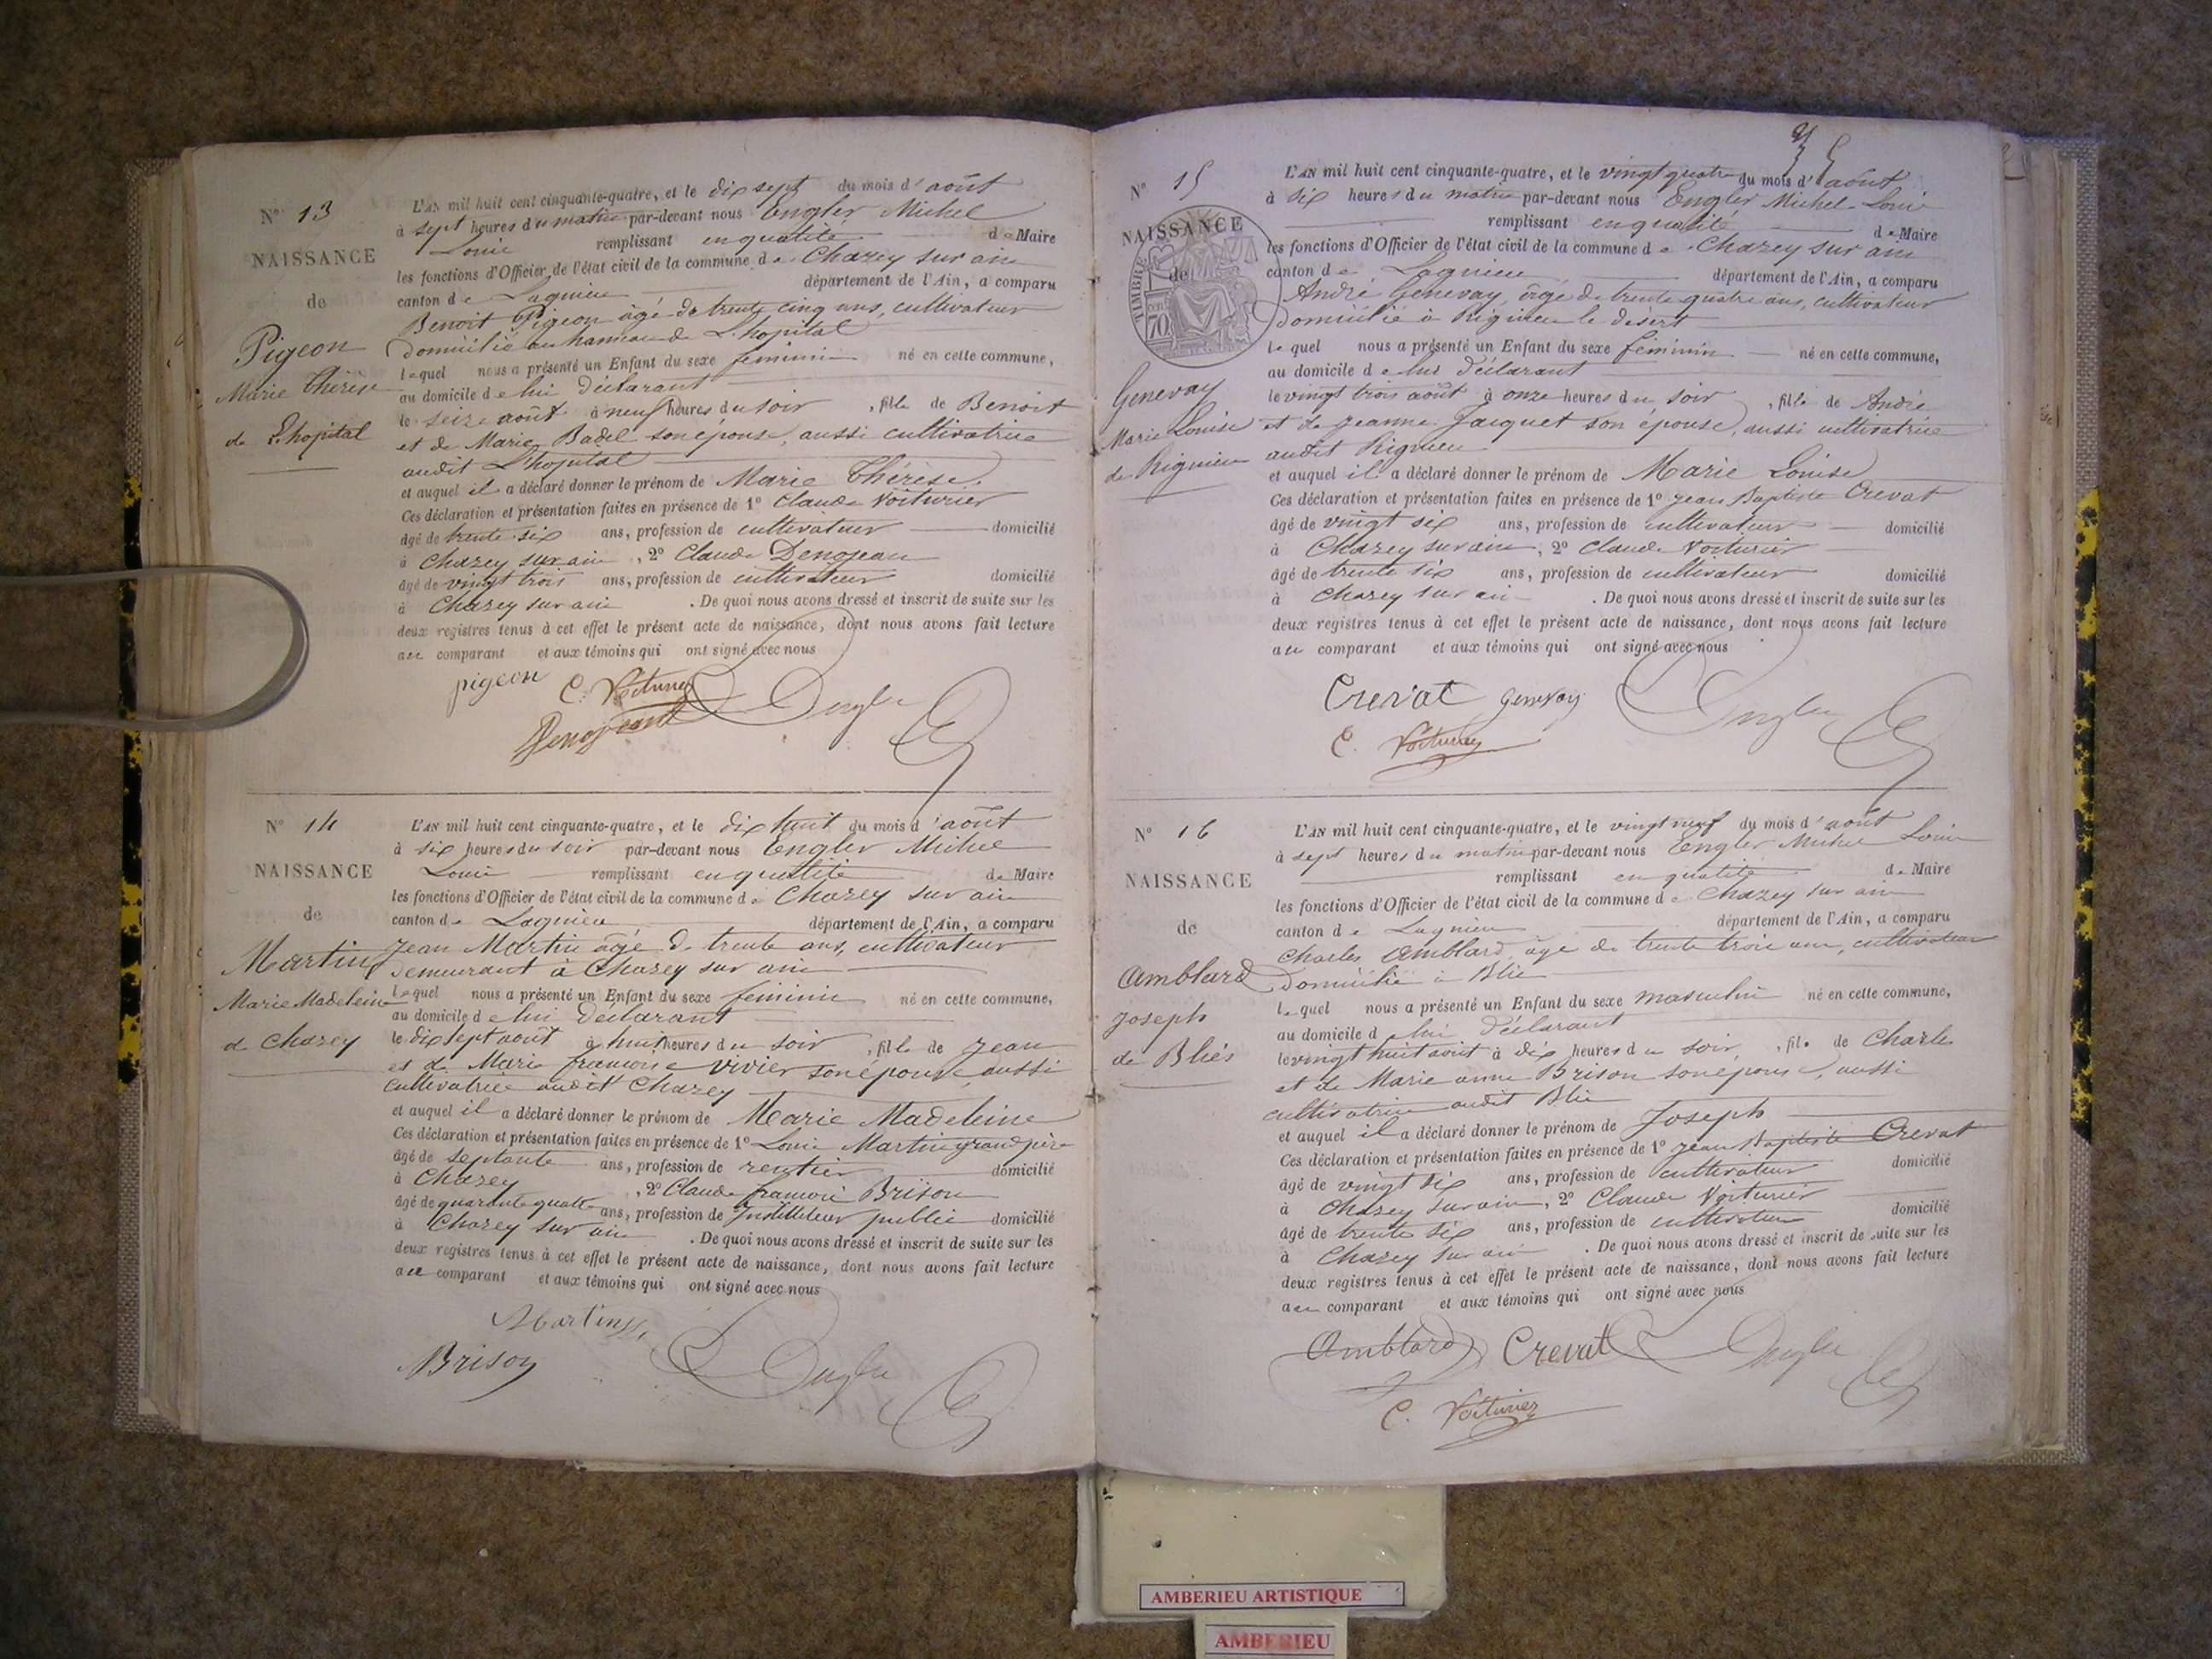 N° 13
NAISSANCE
de
Pigeon
Marie Thérèse
de L'hopital
L'AN mil huit cent cinquante-quatre, et le dix sept du mois d'août
à sept heures du matin par-devant nous Engler Michel
Louis remplissant en qualité de Maire
les fonctions d'Officier de l'état civil de la commune de Chazey sur ain
canton de Lagnieu département de l'Ain, a comparu
Benoit Pigeon âgé de trente cinq ans, cultivateur
Domicilié au hameau de L'hopital
lequel nous a présenté un Enfant du sexe féminin né en cette commune,
au domicile de lui déclarant
le seize août à neuf heures du soir, fille de Benoit
et de Marie Badel son épouse, aussi cultivatrice
audit L'hopital
et auquel il a déclaré donner le prénom de Marie Thérèse.
Ces déclaration et présentation faites en présence de 1° Claude Voiturier
âgé de trente six ans, profession de cultivateur domicilié
à Chazey sur ain, 2° Claude Denojean
âgé de vingt trois ans, profession de cultivateur domicilié
à Chazey sur ain. De quoi nous avons dressé et inscrit de suite sur les
deux registres tenus à cet effet le présent acte de naissance, dont nous avons fait lecture
au comparant et aux témoins qui ont signé avec nous
pigeon C. Voiturier Engler
N° 14
NAISSANCE
de
Martin
Marie Madeleine
de Chazey
L'AN mil huit cent cinquante-quatre, et le dix huit du mois d'août
à six heures du soir par-devant nous Engler Michel
Louis remplissant en qualité de Maire
les fonctions d'Officier de l'état civil de la commune de Chazey sur ain
canton de Lagnieu département de l'Ain, a comparu
Jean Martin âgé de trente ans, cultivateur
demeurant à Chazey sur ain
lequel nous a présenté un Enfant du sexe féminin né en cette commune,
au domicile de lui déclarant
le dix sept août à huit heures du soir, fille de Jean
et de Marie françoise Vivier son épouse, aussi
cultivatrice audit Chazey
et auquel il a déclaré donner le prénom de Marie Madeleine
Ces déclaration et présentation faites en présence de 1° Louis Martin grand père
âgé de septante ans, profession de rentier domicilié
à Chazey, 2° Claude françois Brison
âgé de quarante quatre ans, profession de Instituteur public domicilié
à Chazey sur ain. De quoi nous avons dressé et inscrit de suite sur les
deux registres tenus à cet effet le présent acte de naissance, dont nous avons fait lecture
au comparant et aux témoins qui ont signé avec nous
Martin
Brison Engler
N° 15
NAISSANCE
de
TIMBRE
70
Genevay
Marie Louise
de Rignieu
L'AN mil huit cent cinquante-quatre, et le vingt quatre du mois d'août
à six heures du matin par-devant nous Engler Michel Louis
remplissant en qualité de Maire
les fonctions d'Officier de l'état civil de la commune de Chazey sur ain
canton de Lagnieu département de l'Ain, a comparu
André Genevay, âgé de trente quatre ans, cultivateur
Domicilié à Rignieu le désert
lequel nous a présenté un Enfant du sexe féminin né en cette commune,
au domicile de lui déclarant
le vingt trois août à onze heures du soir, fille de André
et de Jeanne Jacquet son épouse, aussi cultivatrice
audit Rignieu
et auquel il a déclaré donner le prénom de Marie Louise
Ces déclaration et présentation faites en présence de 1° Jean Baptiste Crevat
âgé de vingt six ans, profession de cultivateur domicilié
à Chazey sur ain, 2° Claude Voiturier
âgé de trente six ans, profession de cultivateur domicilié
à Chazey sur ain. De quoi nous avons dressé et inscrit de suite sur les
deux registres tenus à cet effet le présent acte de naissance, dont nous avons fait lecture
au comparant et aux témoins qui ont signé avec nous
Crevat Genevay Engler
C. Voiturier
N° 16
NAISSANCE
de
Amblard
Joseph
de Bliés
L'AN mil huit cent cinquante-quatre, et le vingt neuf du mois d'août
à sept heures du matin par-devant nous Engler Michel Louis
remplissant en qualité de Maire
les fonctions d'Officier de l'état civil de la commune de Chazey sur ain
canton de Lagnieu département de l'Ain, a comparu
Charles Amblard, âgé de trente trois ans, cultivateur
Domicilié à Blie
lequel nous a présenté un Enfant du sexe masculin né en cette commune,
au domicile de lui déclarant
le vingt huit août à dix heures du soir, fils de Charles
et de Marie anne Brison son épouse, aussi
cultivatrice audit Blie
et auquel il a déclaré donner le prénom de Joseph
Ces déclaration et présentation faites en présence de 1° Jean Baptiste Crevat
âgé de vingt six ans, profession de cultivateur domicilié
à Chazey sur ain, 2° Claude Voiturier
âgé de trente six ans, profession de cultivateur domicilié
à Chazey sur ain. De quoi nous avons dressé et inscrit de suite sur les
deux registres tenus à cet effet le présent acte de naissance, dont nous avons fait lecture
au comparant et aux témoins qui ont signé avec nous
Amblard Crevat Engler
C. Voiturier
AMBERIEU ARTISTIQUE
AMBERIEU